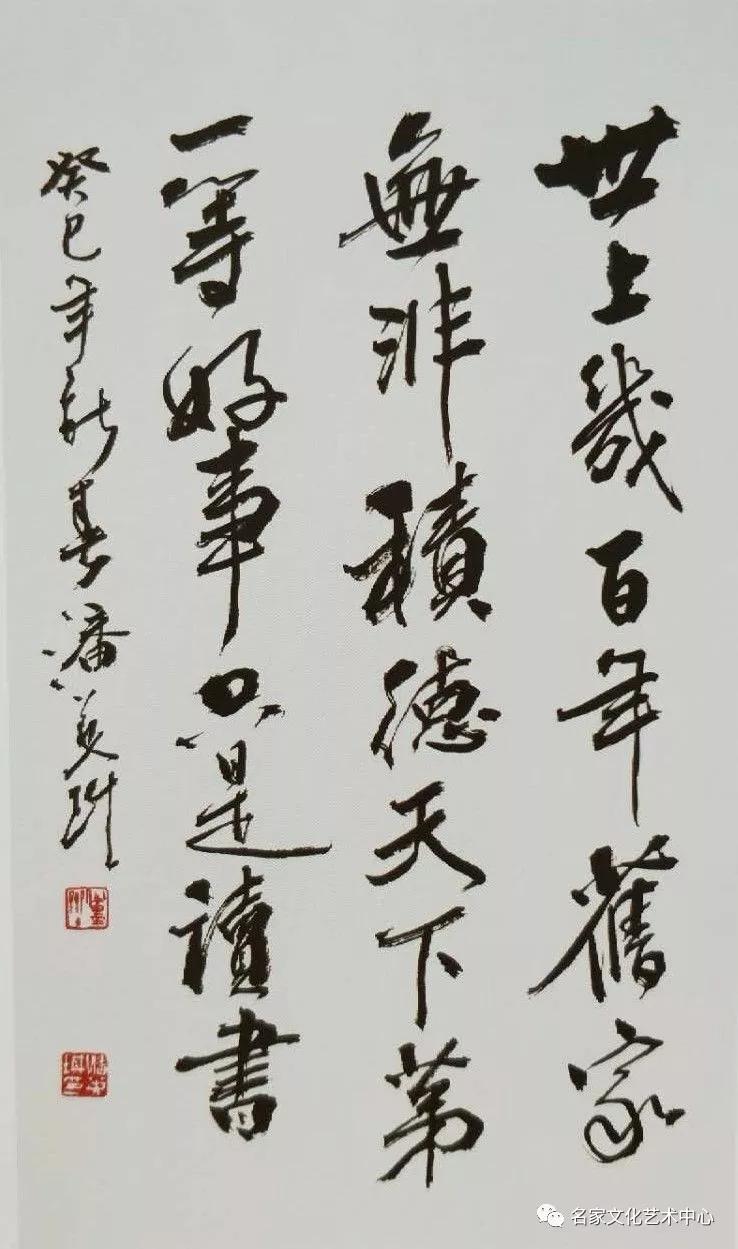 世上幾百年舊家
無非積德天下第
一等好事只是讀書
癸巳年新春潘美
名家文化艺术中心